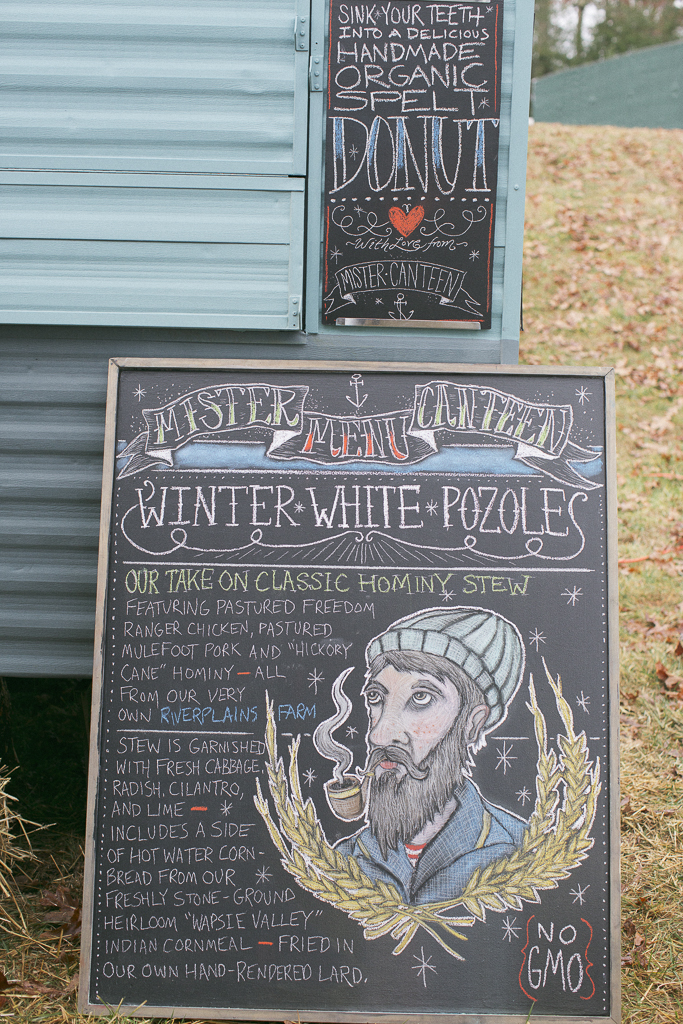 SINK YOUR TEETH
INTO A DELICIOUS
HANDMADE
ORGANIC
SPELT
DONUT
With Love from
MISTER CANTEEN
MISTER CANTEEN
MENU
WINTER WHITE POZOLES
OUR TAKE ON CLASSIC HOMINY STEW
FEATURING PASTURED FREEDOM
RANGER CHICKEN, PASTURED
MULEFOOT PORK AND "HICKORY
CANE" HOMINY — ALL
FROM OUR VERY
OWN RIVERPLAINS FARM
STEW IS GARNISHED
WITH FRESH CABBAGE,
RADISH, CILANTRO,
AND LIME —
INCLUDES A SIDE
OF HOT WATER CORN-
BREAD FROM OUR
FRESHLY STONE-GROUND
HEIRLOOM "WAPSIE VALLEY"
INDIAN CORNMEAL — FRIED IN
OUR OWN HAND-RENDERED LARD.
NO
GMO